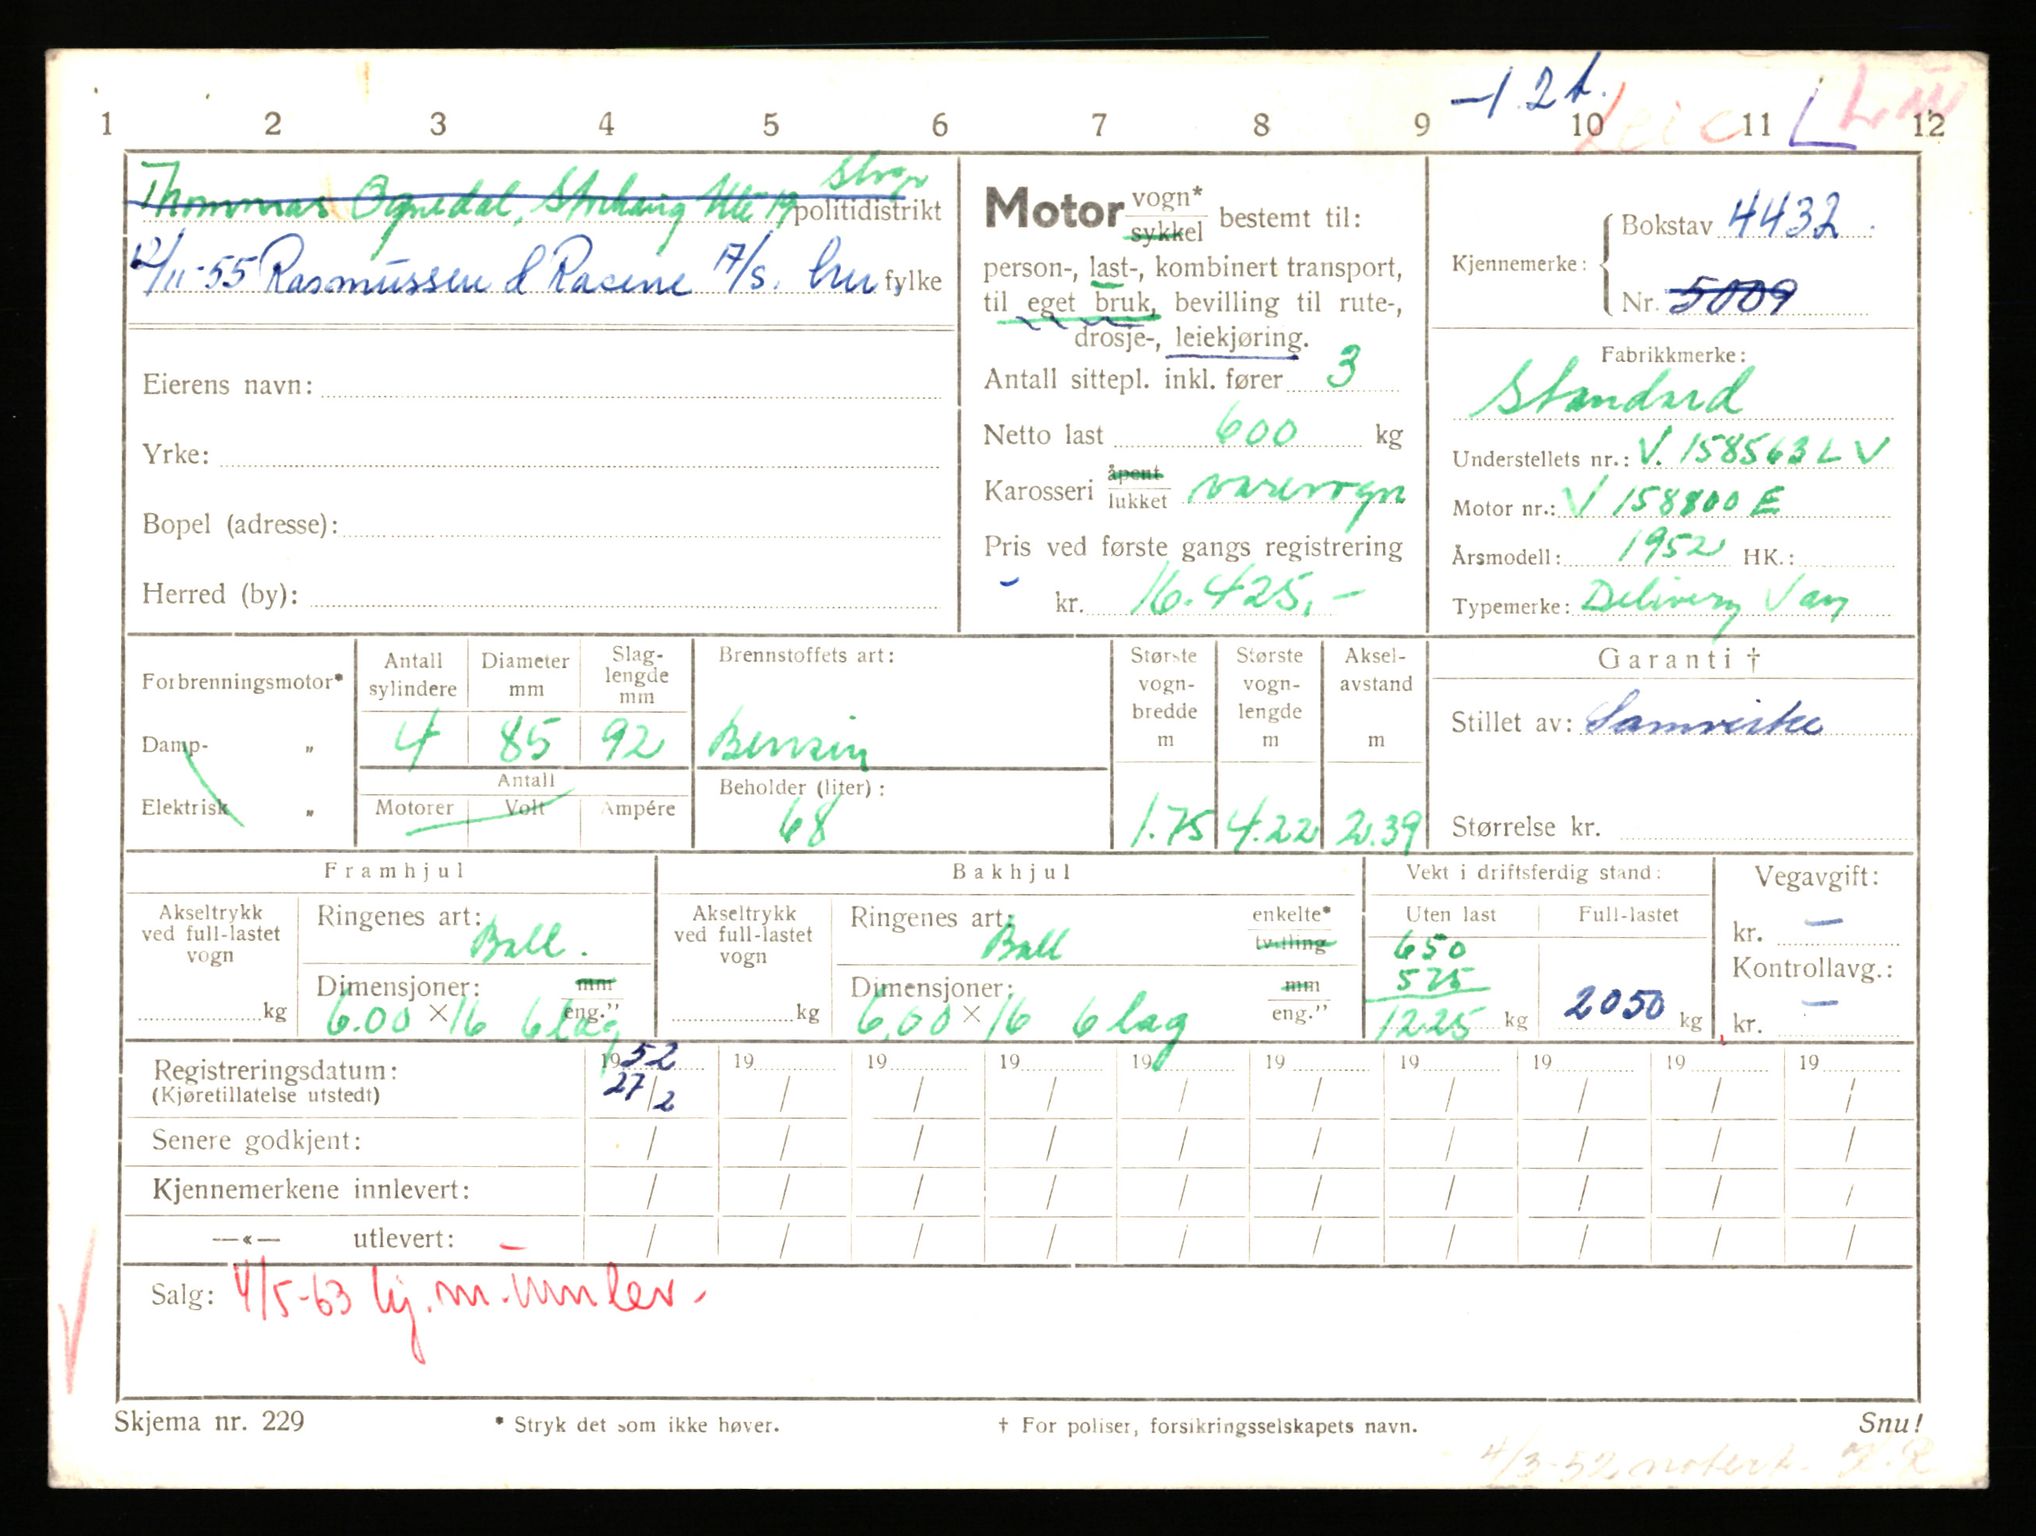 -1 2t.
Leie L L III
1 2 3 4 5 6 7 8 9 10 11 12
Thommas Ognedal, Storhaug Alle 19 politidistrikt
12/11-55 Rasmussen & Racine A/S. fylke
Eierens navn:
Yrke:
Bopel (adresse):
Herred (by):
Motor vogn* sykkel bestemt til:
person-, last-, kombinert transport,
til eget bruk, bevilling til rute-,
drosje-, leiekjøring.
Antall sittepl. inkl. fører 3
Netto last 600 kg
Karosseri åpent lukket varevogn
Pris ved første gangs registrering
kr. 16.425,-
Kjennemerke: Bokstav 4432
Nr. 5009
Fabrikkmerke:
Standard
Understellets nr.: V. 158563 L V
Motor nr.: V 158800 E
Årsmodell: 1952 HK.:
Typemerke: Delivery Van
Forbrenningsmotor*
Damp- „
Elektrisk „
Antall sylindere 4
Diameter mm 85
Slag-lengde mm 92
Antall
Motorer Volt Ampére
Brennstoffets art:
Bensin
Beholder (liter):
68
Største vogn-bredde m 1.75
Største vogn-lengde m 4.22
Aksel-avstand m 2.39
Garanti †
Stillet av: Samvirke
Størrelse kr.
Framhjul
Akseltrykk ved full-lastet vogn
kg
Ringenes art: Ball.
Dimensjoner: mm eng."
6.00 × 16 6 lag
Bakhjul
Akseltrykk ved full-lastet vogn
kg
Ringenes art: Ball
enkelte* tvilling
Dimensjoner: mm eng."
6,00 × 16 6 lag
Vekt i driftsferdig stand:
Uten last Full-lastet
650
575
1225 kg 2050 kg
Vegavgift:
kr. -
Kontrollavg.:
kr. -
Registreringsdatum: 1952 19 19 19 19 19 19 19 19 19
(Kjøretillatelse utstedt) 27/2 / / / / / / / / /
Senere godkjent: / / / / / / / / / /
Kjennemerkene innlevert: / / / / / / / / / /
—«— utlevert: / / / / / / / / / /
Salg: 4/5-63 kj.m. innlev.
Skjema nr. 229 * Stryk det som ikke høver. † For poliser, forsikringsselskapets navn. Snu!
4/3-52 notert.